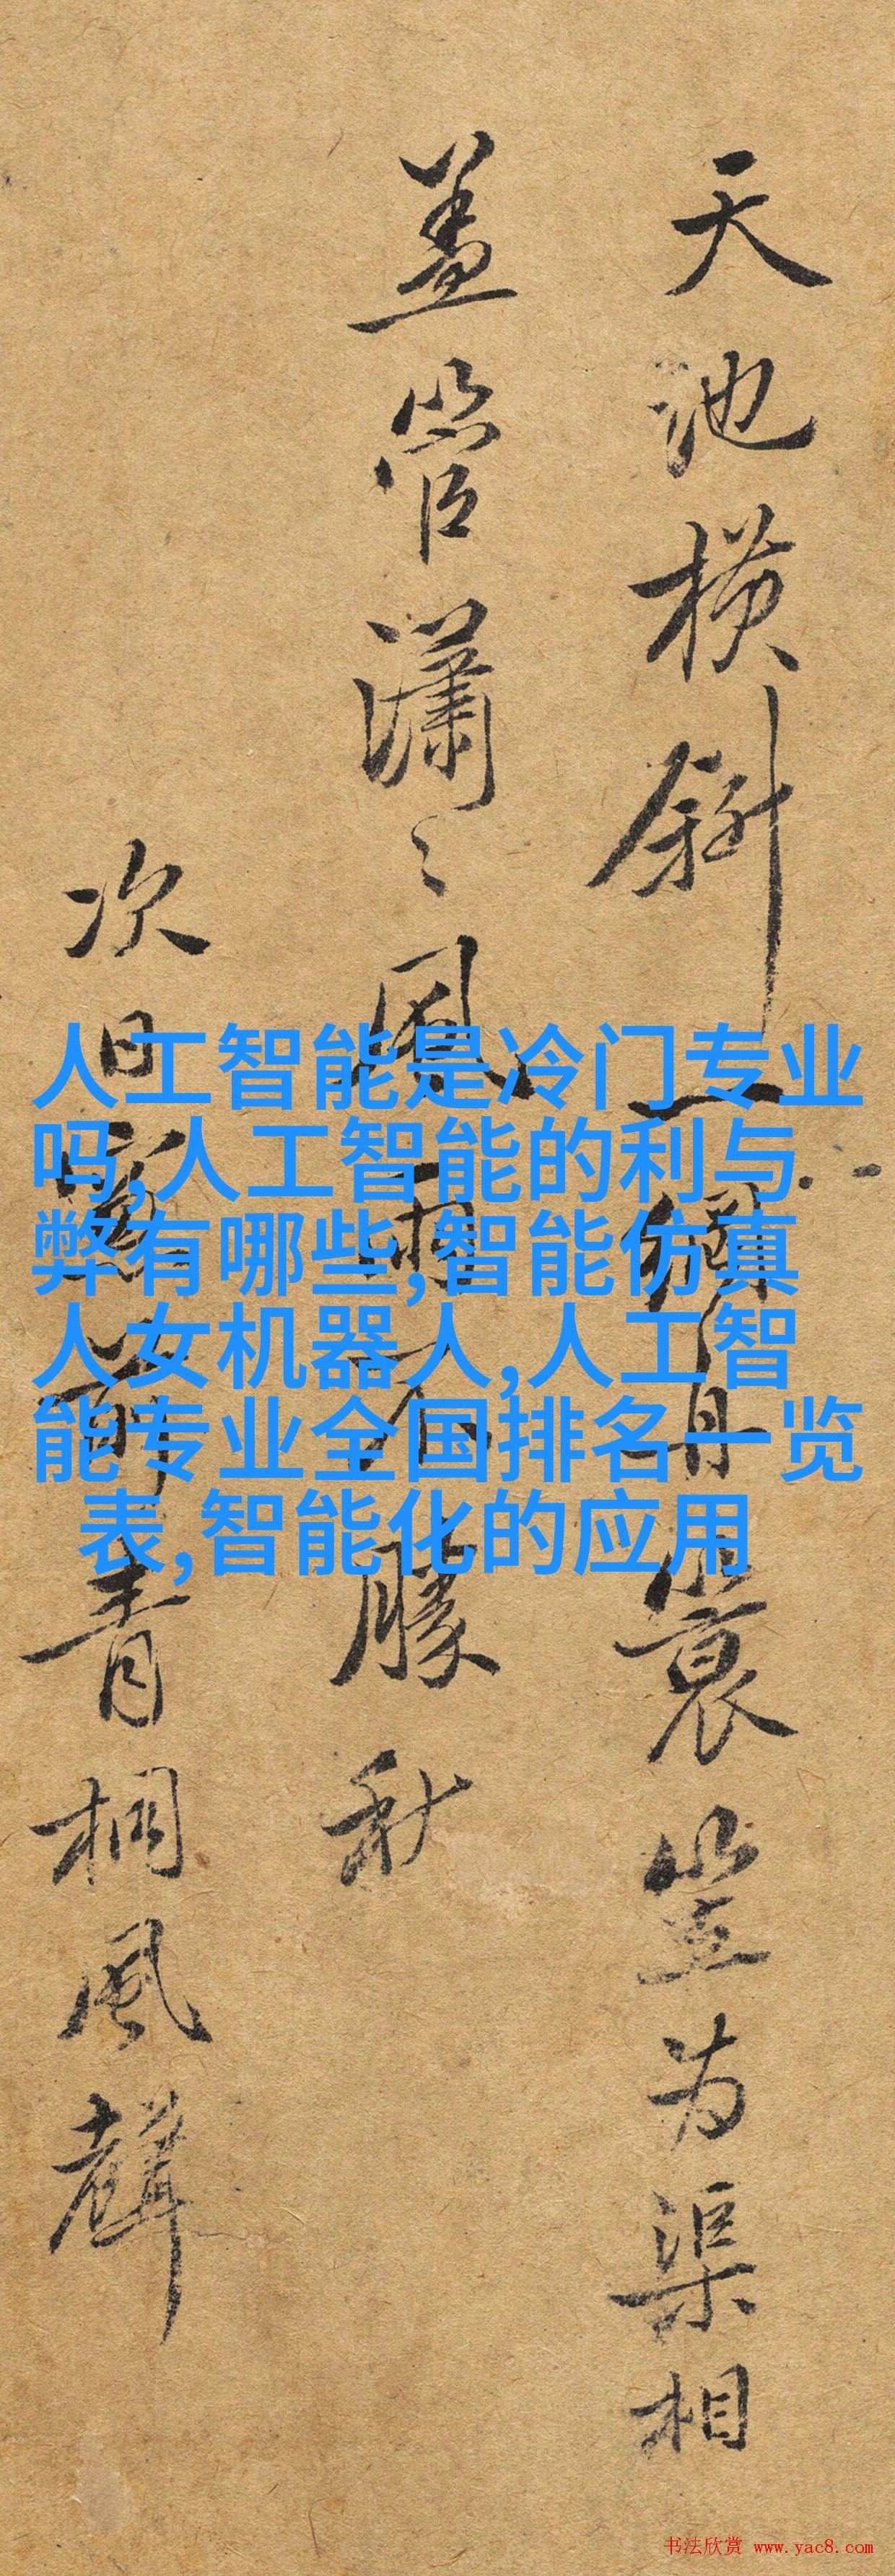 天池横斜一網舟蓑笠为渠相
盖管瀟々風雨不勝秋
次日窓前青桐風聲
人工智能是冷门专业
吗,人工智能的利与
弊有哪些,智能仿真
人女机器人,人工智
能专业全国排名一览
表,智能化的应用
书法欣赏 www.yac8.com